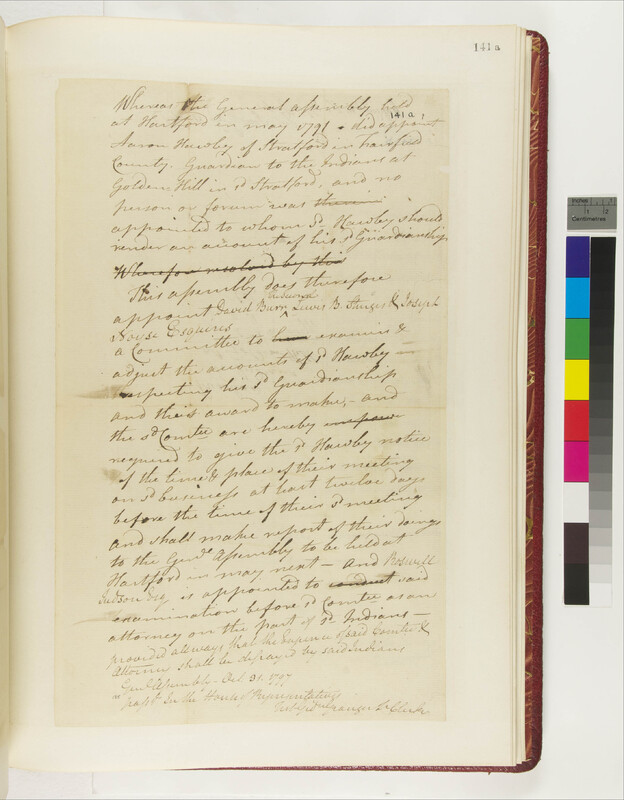 141a
Whereas the General assembly held
at Hartford in may 1791 - did appoint
141a1
Aaron Hawley of Stratford in Fairfield
County. Guardian to the Indians at
Golden Hill in sd Stratford, and no
person or forum was
appointed to whom sd Hawley should
render an account of his sd Guardianship
Wherefore resolved by this
This assembly does therefore
appoint David Burr Lewis B. Sturges & Joseph
Esquires
a Committee to examine &
adjust the accounts of sd Hawley
respecting his sd Guardianship
and their award to make, - and
the sd Comtee are hereby empower
required to give the sd Hawley notice
of the time & place of their meeting
on sd business at least twelve days
before the time of their sd meeting
and shall make report of their doings
to the Genl Assembly to be held at
Hartford in may next - And Roswell
Judson Esq is appointed to conduct said
examination before sd Comtee as an
attorney on the part of sd Indians -
provided always that the Expence of said Comtee &
Attorney shall be defrayed by said Indians
Genl Assembly - Oct 31. 1797
passd In the House of Representatives
Test Gid Granger Jr Clerk
Inches
1
2
Centimetres